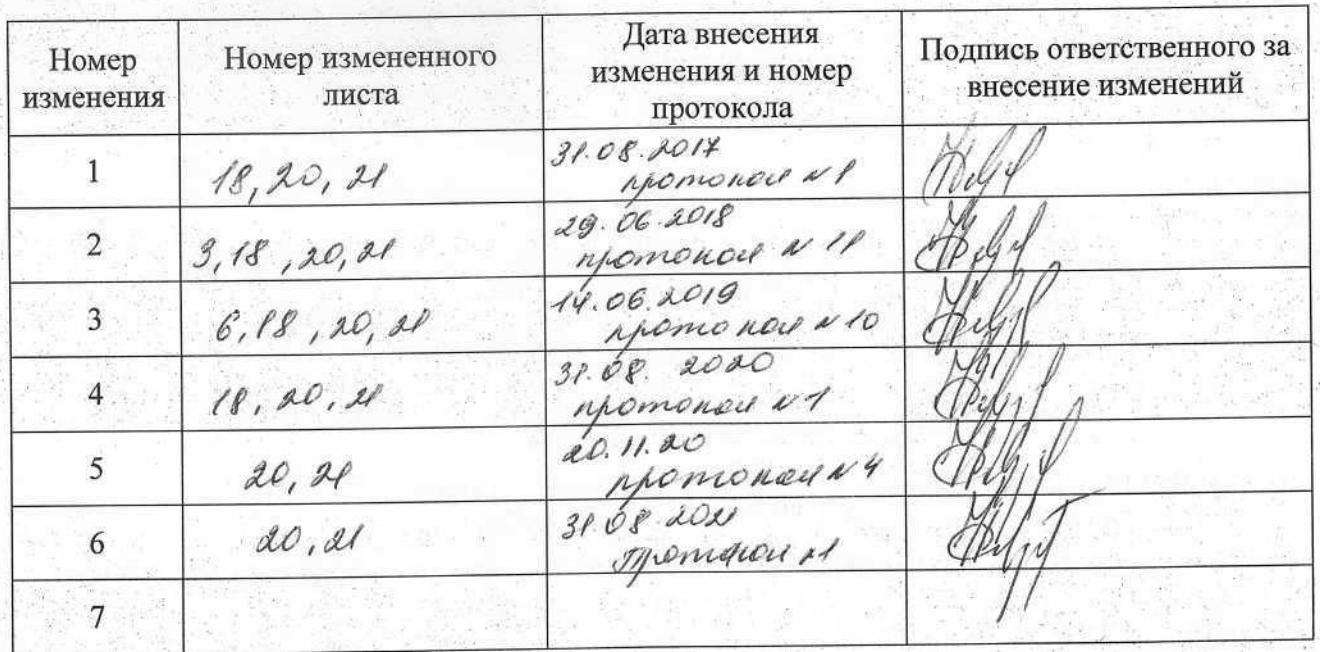 Номер изменения
Номер измененного листа
Дата внесения изменения и номер протокола
Подпись ответственного за внесение изменений
1
18, 20, 21
31.08.2017
протокол № 1
2
3, 18, 20, 21
29.06.2018
протокол № 11
3
6, 18, 20, 21
14.06.2019
протокол № 10
4
18, 20, 21
31.08. 2020
протокол № 1
5
20, 21
20.11.20
протокол № 4
6
20, 21
31.08.2021
Протокол №1
7